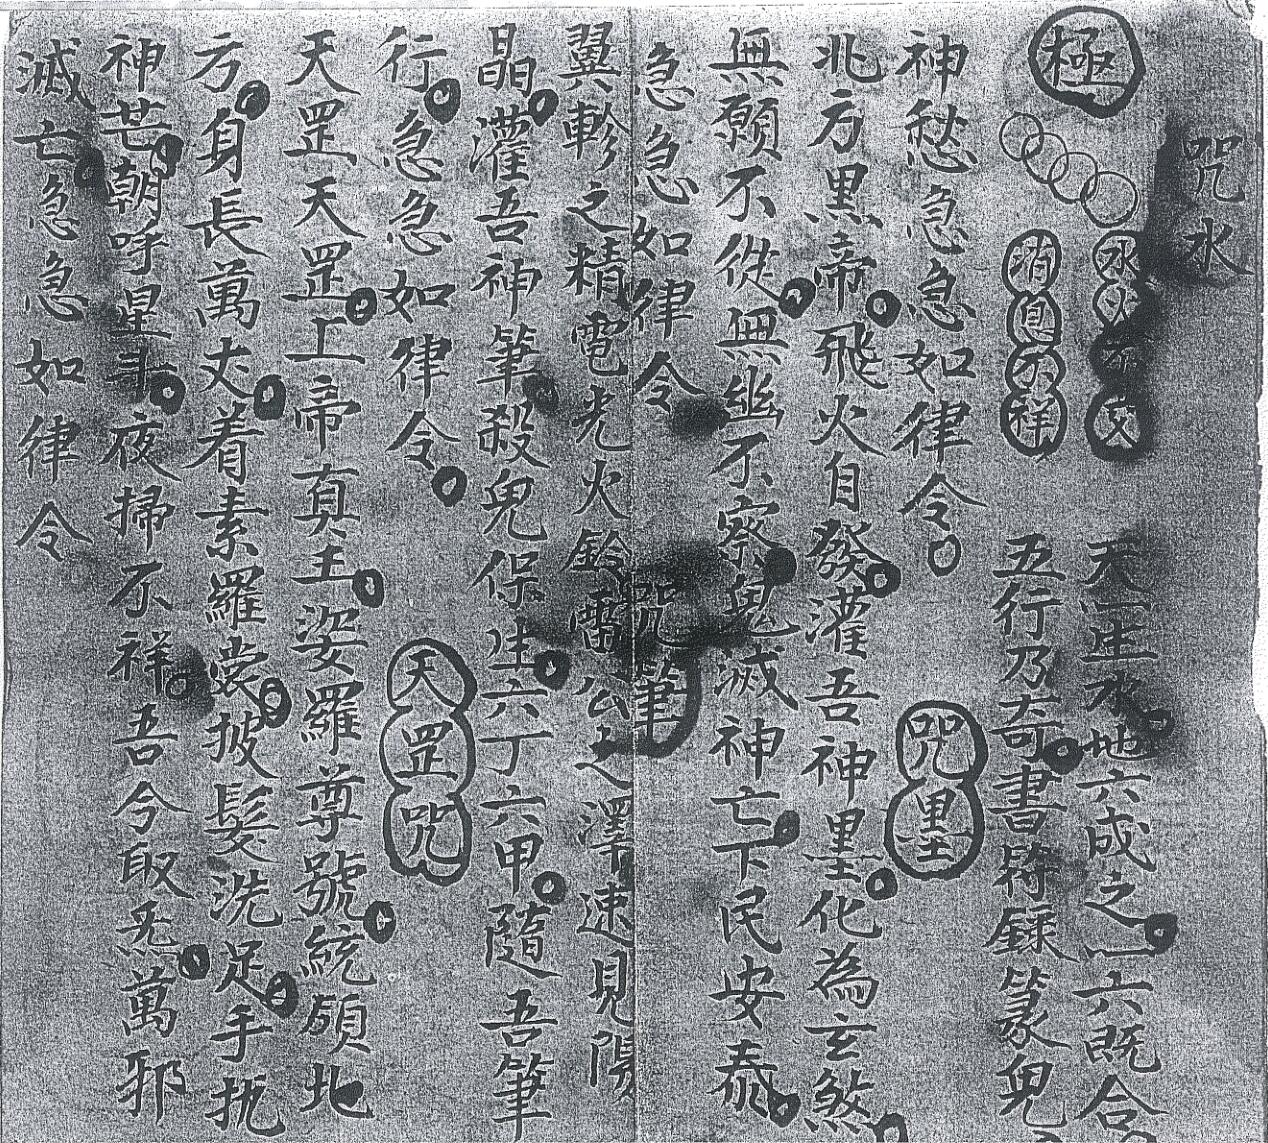 咒水
極
水火不交　天一生水地六成之一六既合
消息不祥　五行乃奇書符錄篆鬼
神愁急急如律令　咒墨
北方黑帝飛火自發灌吾神墨化為玄煞
無願不從無幽不察鬼滅神亡下民安泰
急急如律令　咒筆
翼軫之精電光火鈴雷公之澤速見陽
晶灌吾神筆殺鬼保生六丁六甲隨吾筆
行急急如律令　天罡咒
天罡天罡上帝真主姿羅尊號統領地
方身長萬丈着素羅裳披髮洗足手执
神芒朝呼星斗夜掃不祥吾今取炁萬邪
滅亡急急如律令